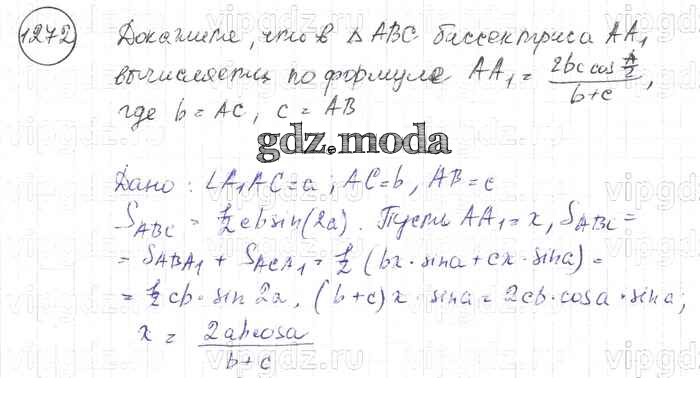 1272 Докажите, что в Δ ABC биссектриса AA₁
вычисляется по формуле AA₁ = 2bc cos A/2 / b+c,
где b = AC, c = AB
gdz.moda
Дано: ∠A₁AC = a; AC = b, AB = c
S_ABC = 1/2 cb sin(2a). Пусть AA₁ = x, S_ABC =
= S_ABA₁ + S_ACA₁ = 1/2 (bx · sina + cx · sina) =
= 1/2 cb · sin 2a, (b+c)x · sina = 2cb · cosa · sina;
x = 2abcosa / b+c